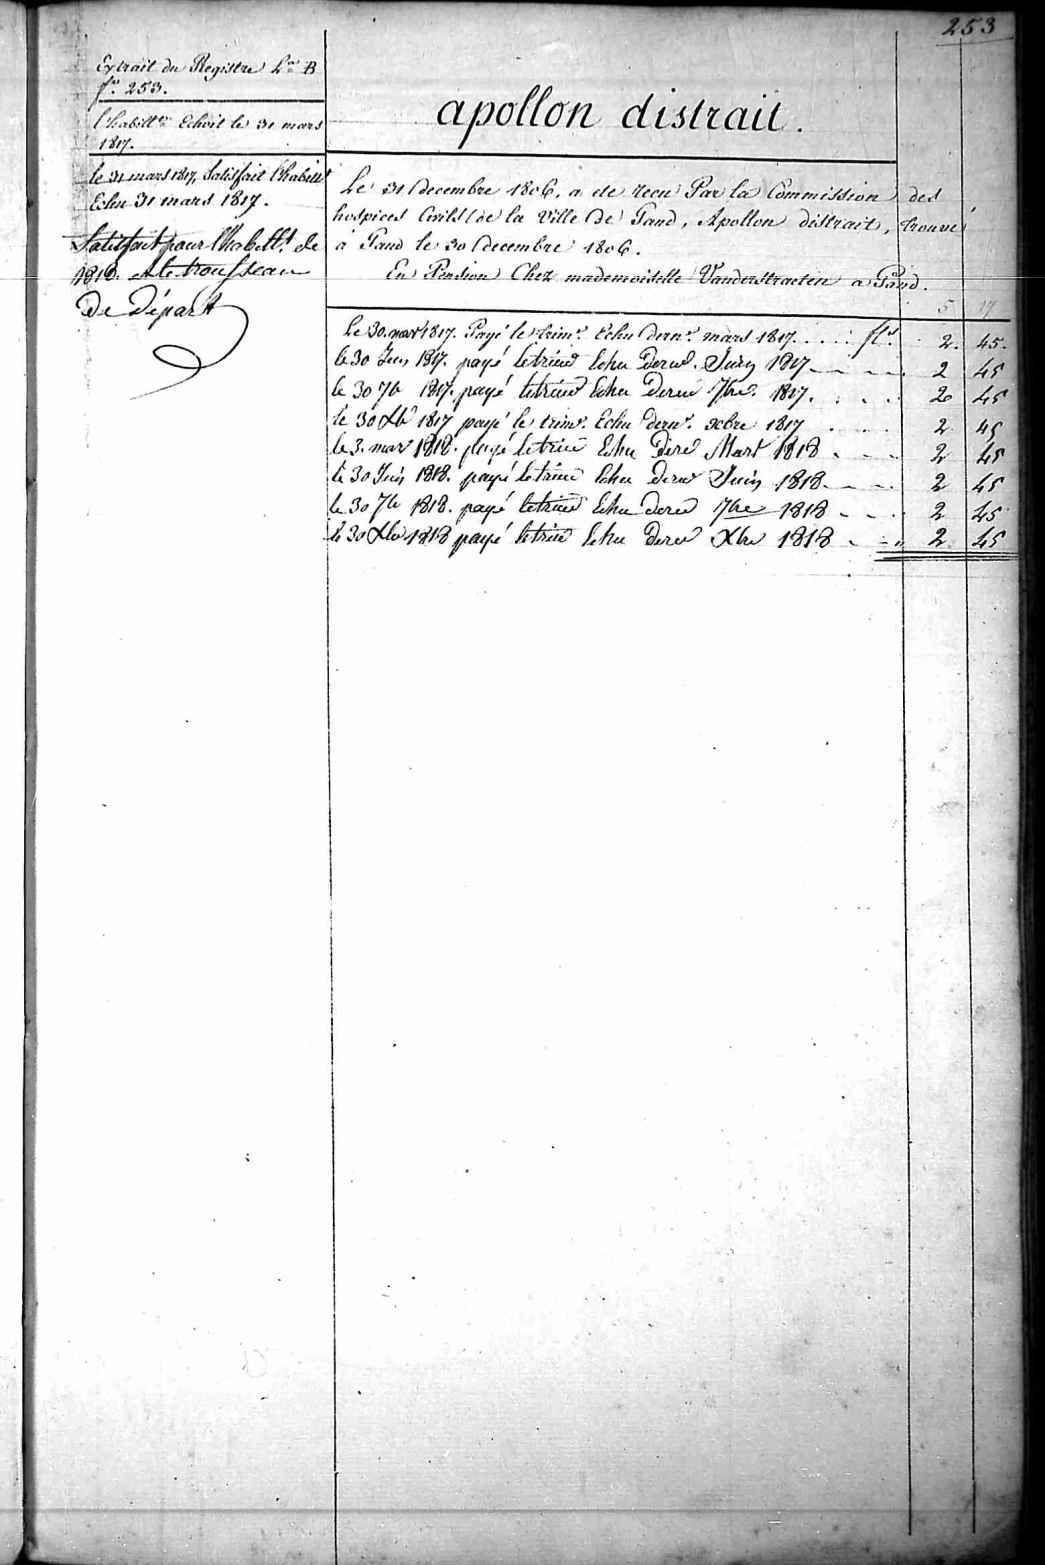 253
Extrait du Registre L.re B
f.o 253.
l'habill.t Echoit le 31 mars
1817.
le 31 mars 1817, Satisfait l'habill.t
Echu 31 mars 1817.
Satisfait pour l'habill.t de
1818. et le trousseau
De Départ
apollon distrait.
Le 31 Decembre 1806. a ete recu Par la Commission des
hospices Civils de la Ville de Gand, Apollon distrait, trouvé
à Gand le 30 Decembre 1806.
En Pension Chez mademoiselle Vanderstraeten a Gand.
5 17
Le 30. mars 1817. Payé le trim.e Echu dern.r mars 1817. fl.s 2. 45.
le 30 Juin 1817. payé le trim Echu dern.r Juin 1817 2 45
le 30 7b 1817. payé le trim Echu dern 7bre. 1817. 2 45
le 30 Xb 1817 payé le trim.e Echu dern.r xbre 1817 2 45
le 3. mars 1818. payé le trim Echu Dern Mars 1818 2 45
le 30 Juin 1818. payé le trim Echu dern Juin 1818 2 45
le 30 7b 1818. payé le trim Echu dern 7bre 1818 2 45
le 30 Xb 1818 payé le trim Echu dern Xbre 1818 2 45